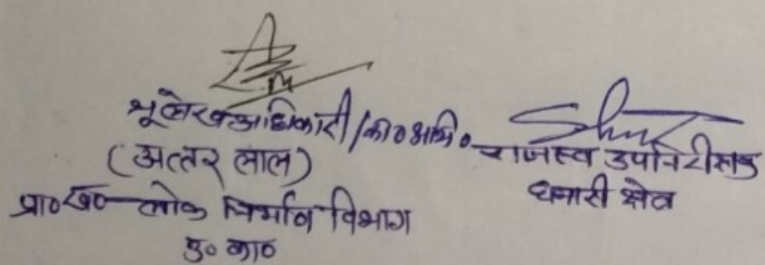 भूलेख अधिकारी/क०अभि०
(अत्तर लाल)
प्रा०ख० लोक निर्माण विभाग
उ० का०
राजस्व उपनिरीक्षक
धनारी क्षेत्र